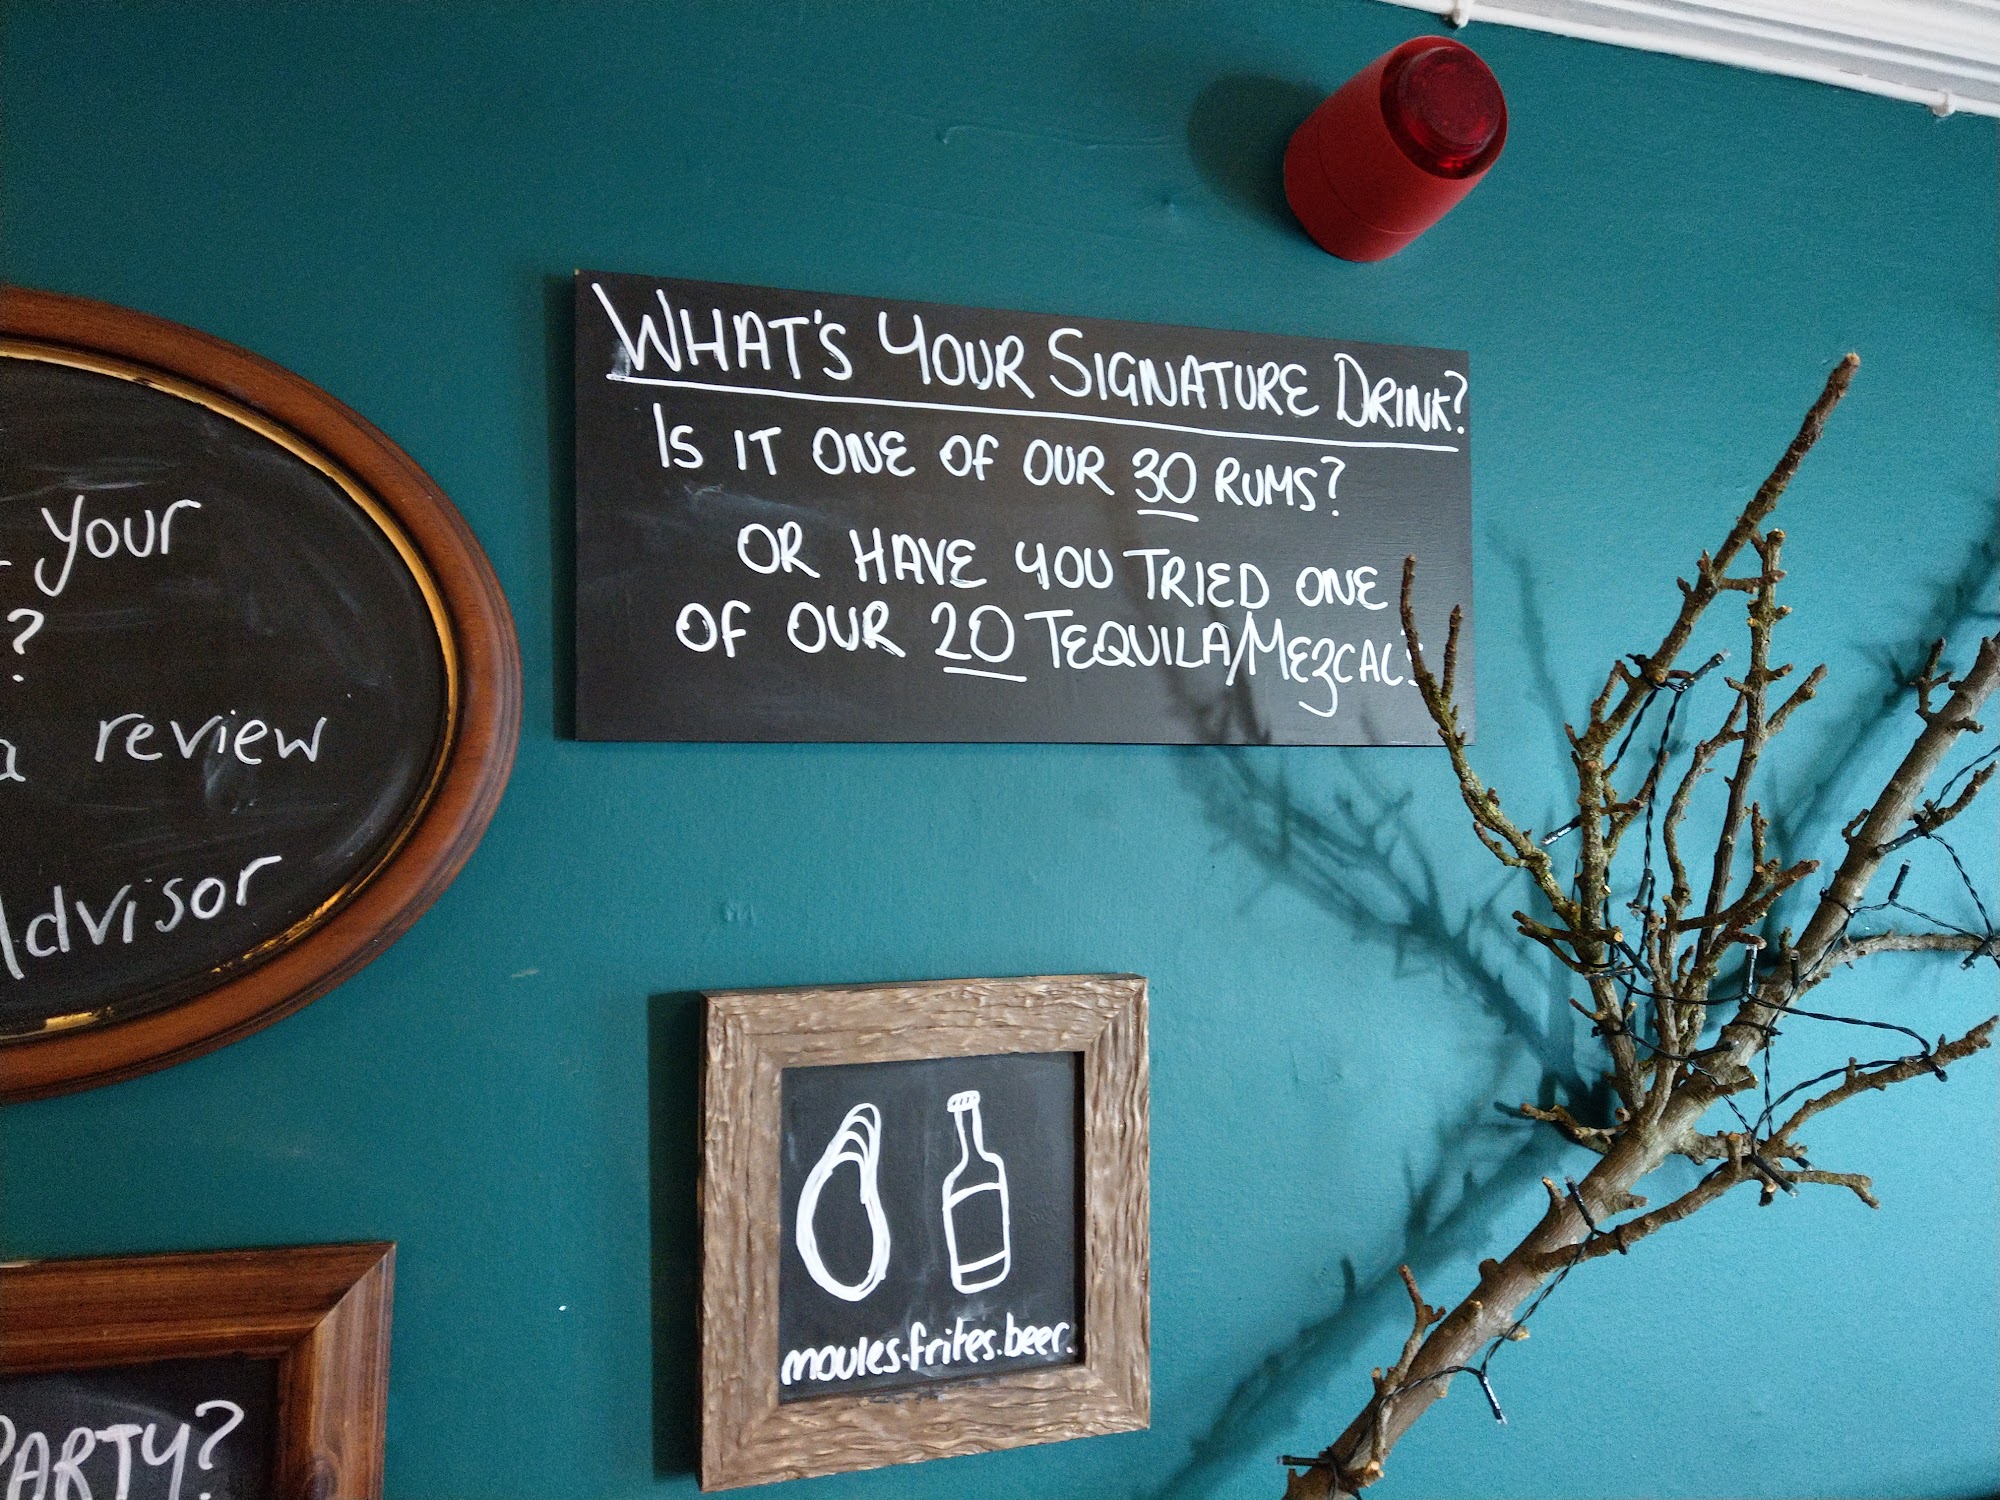 WHAT'S YOUR SIGNATURE DRINK?
IS IT ONE OF OUR 30 RUMS?
OR HAVE YOU TRIED ONE
OF OUR 20 TEQUILA/MEZCAL'S
your
?
a review
Advisor
moules.frites.beer.
PARTY?